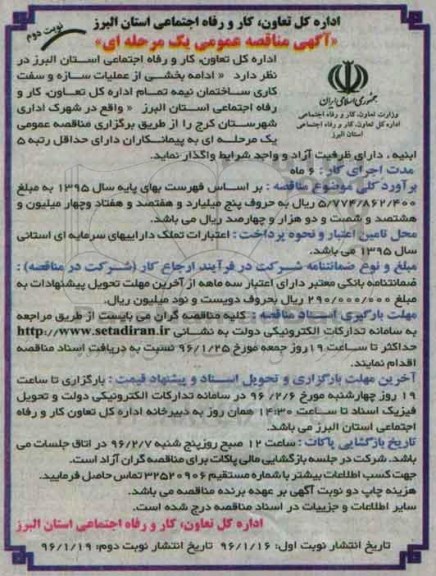 اداره کل تعاون، کار و رفاه اجتماعی استان البرز
نوبت دوم
«آگهی مناقصه عمومی یک مرحله ای»
جمهوری اسلامی ایران
وزارت تعاون، کار و رفاه اجتماعی
اداره کل تعاون، کار و رفاه اجتماعی
استان البرز
اداره کل تعاون، کار و رفاه اجتماعی استان البرز در
نظر دارد « ادامه بخشی از عملیات سازه و سفت
کاری ساختمان نیمه تمام اداره کل تعاون، کار و
رفاه اجتماعی استان البرز » واقع در شهرک اداری
شهرستان کرج را از طریق برگزاری مناقصه عمومی
یک مرحله ای به پیمانکاران دارای حداقل رتبه 5
ابنیه ، دارای ظرفیت آزاد و واجد شرایط واگذار نماید.
مدت اجرای کار : 6 ماه
برآورد کلی موضوع مناقصه : بر اساس فهرست بهای پایه سال 1395 به مبلغ
5/774/862/400 ریال به حروف پنج میلیارد و هفتصد و هفتاد وچهار میلیون و
هشتصد و شصت و دو هزار و چهارصد ریال می باشد.
محل تامین اعتبار و نحوه پرداخت : اعتبارات تملک داراییهای سرمایه ای استانی
سال 1395 می باشد.
مبلغ و نوع ضمانتنامه شرکت در فرآیند ارجاع کار (شرکت در مناقصه) :
ضمانتنامه بانکی معتبر دارای اعتبار سه ماهه از آخرین مهلت تحویل پیشنهادات به
مبلغ 290/000/000 ریال بحروف دویست و نود میلیون ریال.
مهلت بارگیری اسناد مناقصه : کلیه مناقصه گران می بایست از طریق مراجعه
به سامانه تدارکات الکترونیکی دولت به نشانی http://www.setadiran.ir
حداکثر تا ساعت 19 روز جمعه مورخ 96/1/25 نسبت به دریافت اسناد مناقصه
اقدام نمایند.
آخرین مهلت بارگزاری و تحویل اسناد و پیشنهاد قیمت : بارگزاری تا ساعت
19 روز چهارشنبه مورخ 96/2/6 در سامانه تدارکات الکترونیکی دولت و تحویل
فیزیک اسناد تا ساعت 14:30 همان روز به دبیرخانه اداره کل تعاون کار و رفاه
اجتماعی استان البرز می باشد.
تاریخ بازگشایی پاکات : ساعت 12 صبح روزپنج شنبه 96/2/7 در اتاق جلسات می
باشد. شرکت در جلسه بازگشایی مالی پاکات برای مناقصه گران آزاد است.
جهت کسب اطلاعات بیشتر با شماره مستقیم 32520906 تماس حاصل فرمایید.
هزینه چاپ دو نوبت آگهی بر عهده برنده مناقصه می باشد.
سایر اطلاعات و جزییات در اسناد مناقصه درج شده است.
اداره کل تعاون، کار و رفاه اجتماعی استان البرز
تاریخ انتشار نوبت اول: 96/1/16 تاریخ انتشار نوبت دوم: 96/1/19